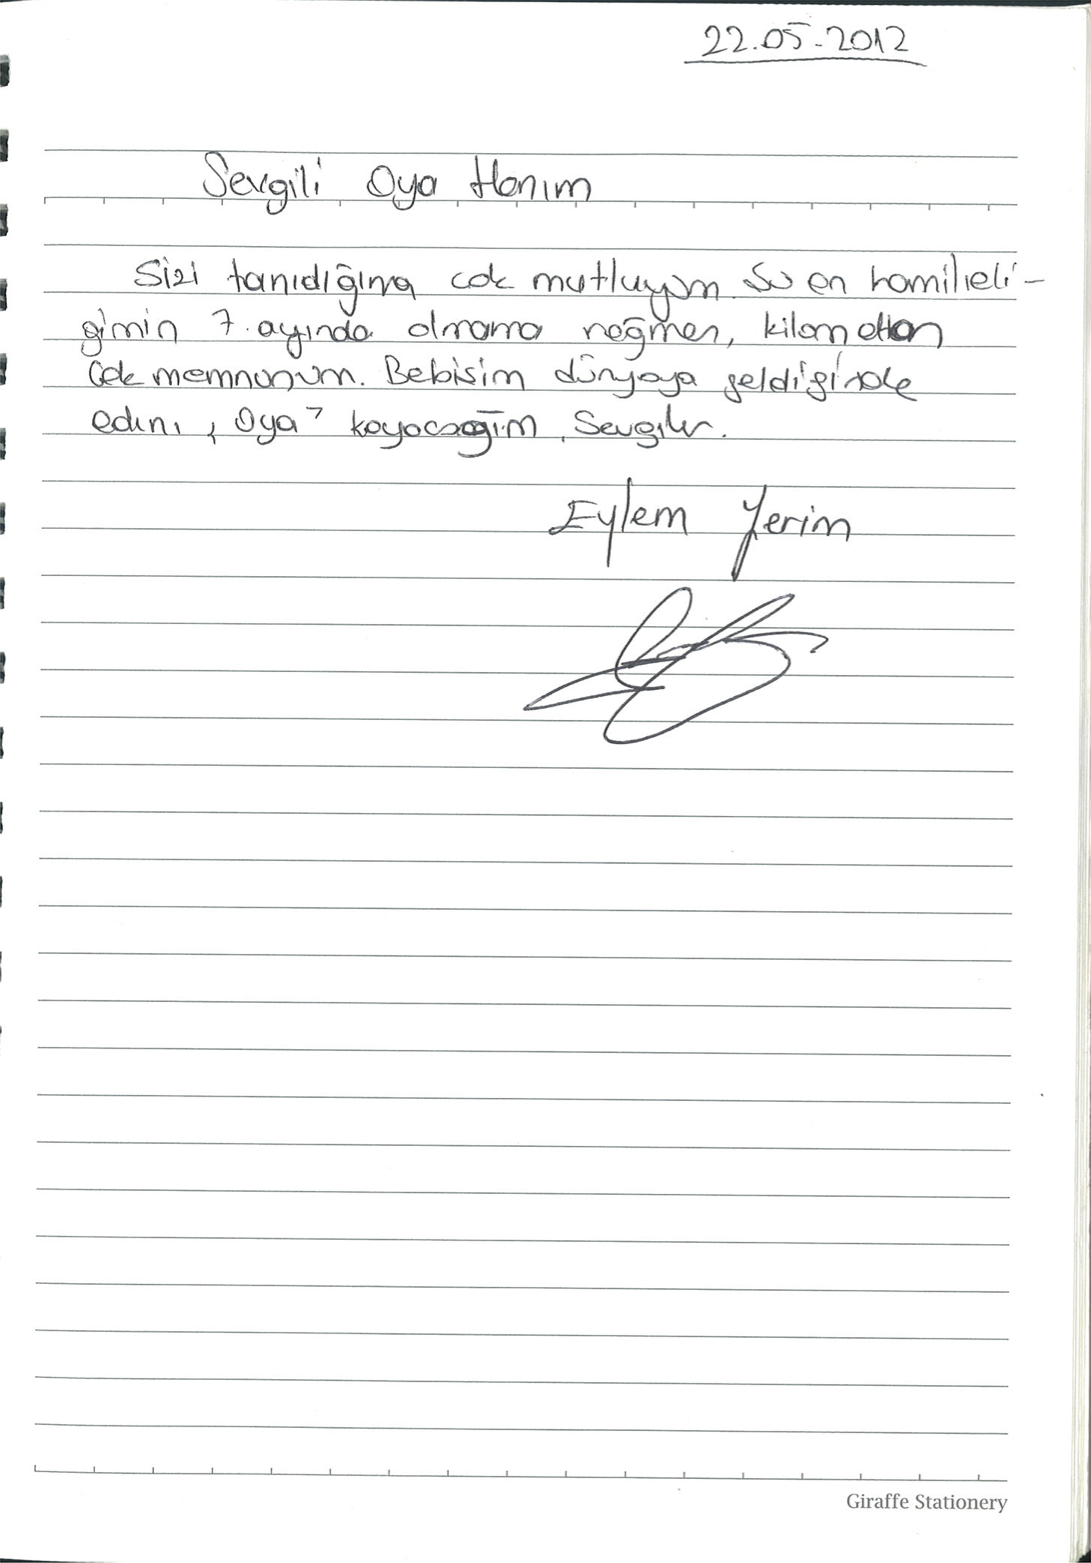 22.05.2012
Sevgili Oya Hanım
Sizi tanıdığıma çok mutluyum. Şu an hamileli-
ğimin 7. ayında olmama rağmen, kilomdan
çok memnunum. Bebişim dünyaya geldiğinde
adını "Oya" koyacağım. Sevgiler.
Eylem Yerim
Giraffe Stationery